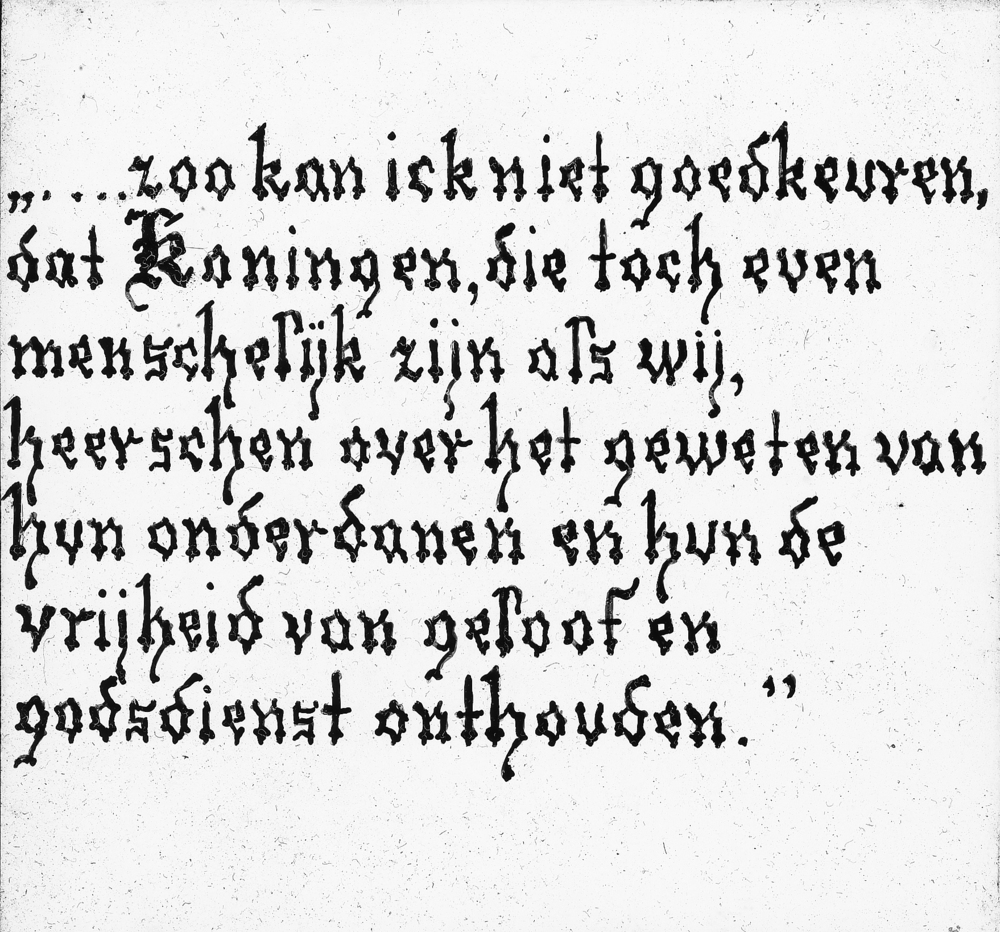 „....zoo kan ick niet goedkeuren,
dat Koningen, die toch even
menschelijk zijn als wij,
heerschen over het geweten van
hun onderdanen en hun de
vrijheid van geloof en
godsdienst onthouden.”